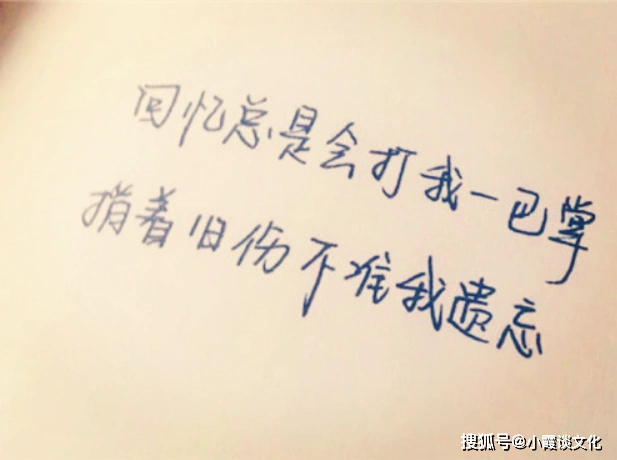 回忆总是会打我一巴掌
指着旧伤不准我遗忘
搜狐号@小霞谈文化